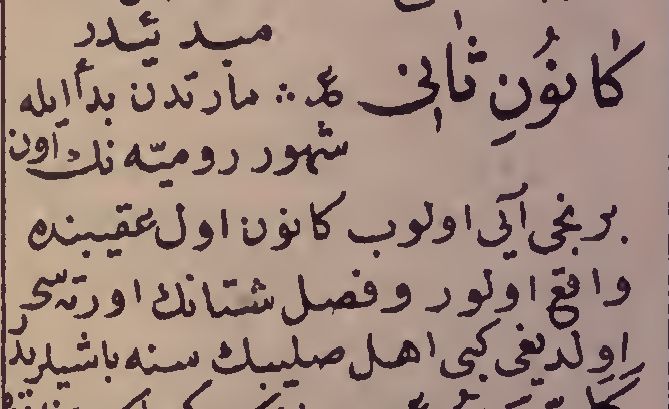 مبدئیدر
كانُونِ ثانی عر :: مارتدن بدأ ایله
شهور رومیّه نك اون
برنجی آیی اولوب كانون اول عقیبنده
واقع اولور و فصل شتانك اورته سی
اولدیغی كبی اهل صلیبك سنه باشیلریدر